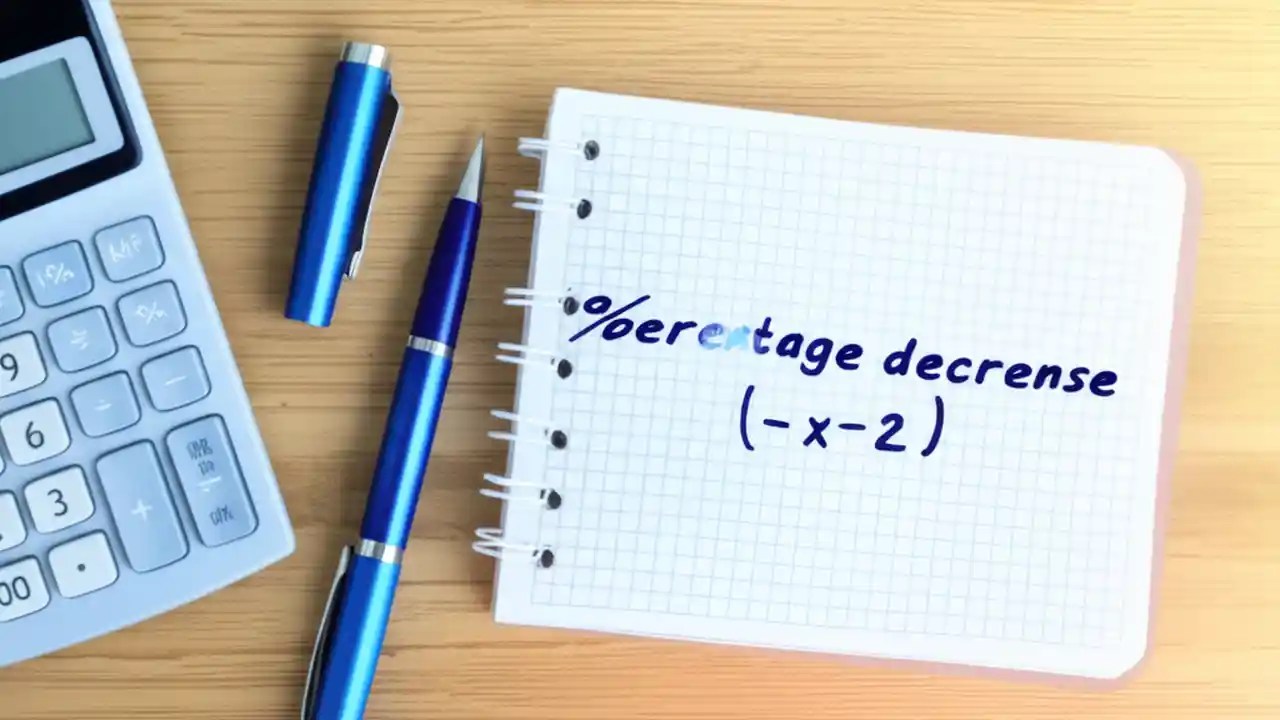 %ercentage decrense
(-x-2)
9
6
3
00
.
+
-
÷